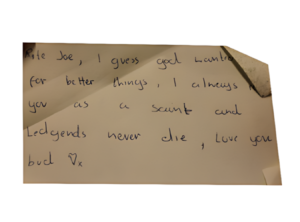 Joe, I guess god wanted
for better things, I always
you as a saint and
Ledgends never die, Love you
bud